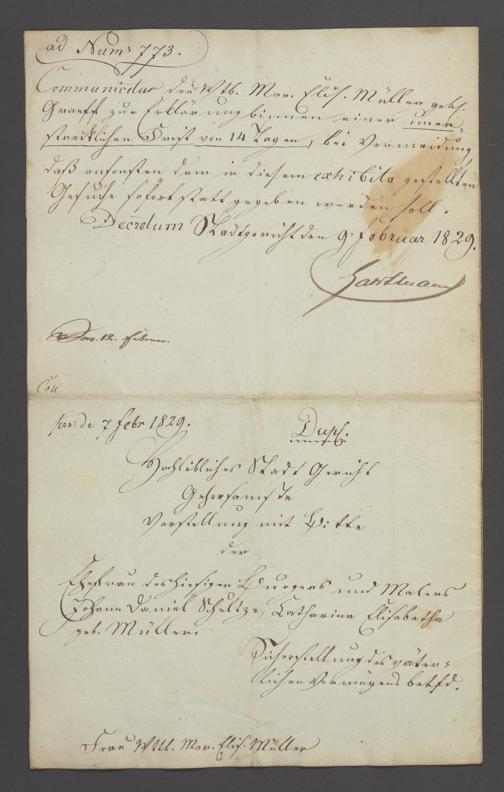 ad Num: 773.
Communicetur der Wtb. Mar. Elis. Müller gebh.
Graeff zur Erklärung binnen einer uner-
strecklichen Frist von 14 Tagen, bei Vermeidung,
daß ansonsten dem in diesem exhibito gestellten
Gesuche sofort statt gegeben werden soll.
Decretum Stadtgericht den 9 Februar 1829.
Hartmann
12. Februar.
Cou
prs: de 7 Febr 1829.
Dupl.
Hochlöbliches Stadt Gericht
Gehorsamste
Vorstellung mit Bitte
der
Ehefrau des hiesigen Burgers und Malers
Johann Daniel Schultze, Catharina Elisabetha
geb. Müller.
Sicherstellung des väter-
lichen Vermögens betfd.
Frau Wtt. Mar. Elis. Müller